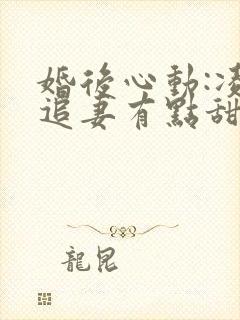 婚後心動:凌
追妻有點甜
龍昆